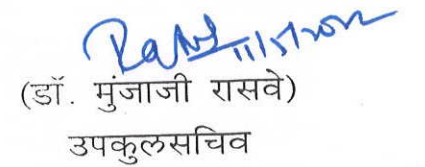 11/5/2012
(डॉ. मुंजाजी रासवे)
उपकुलसचिव